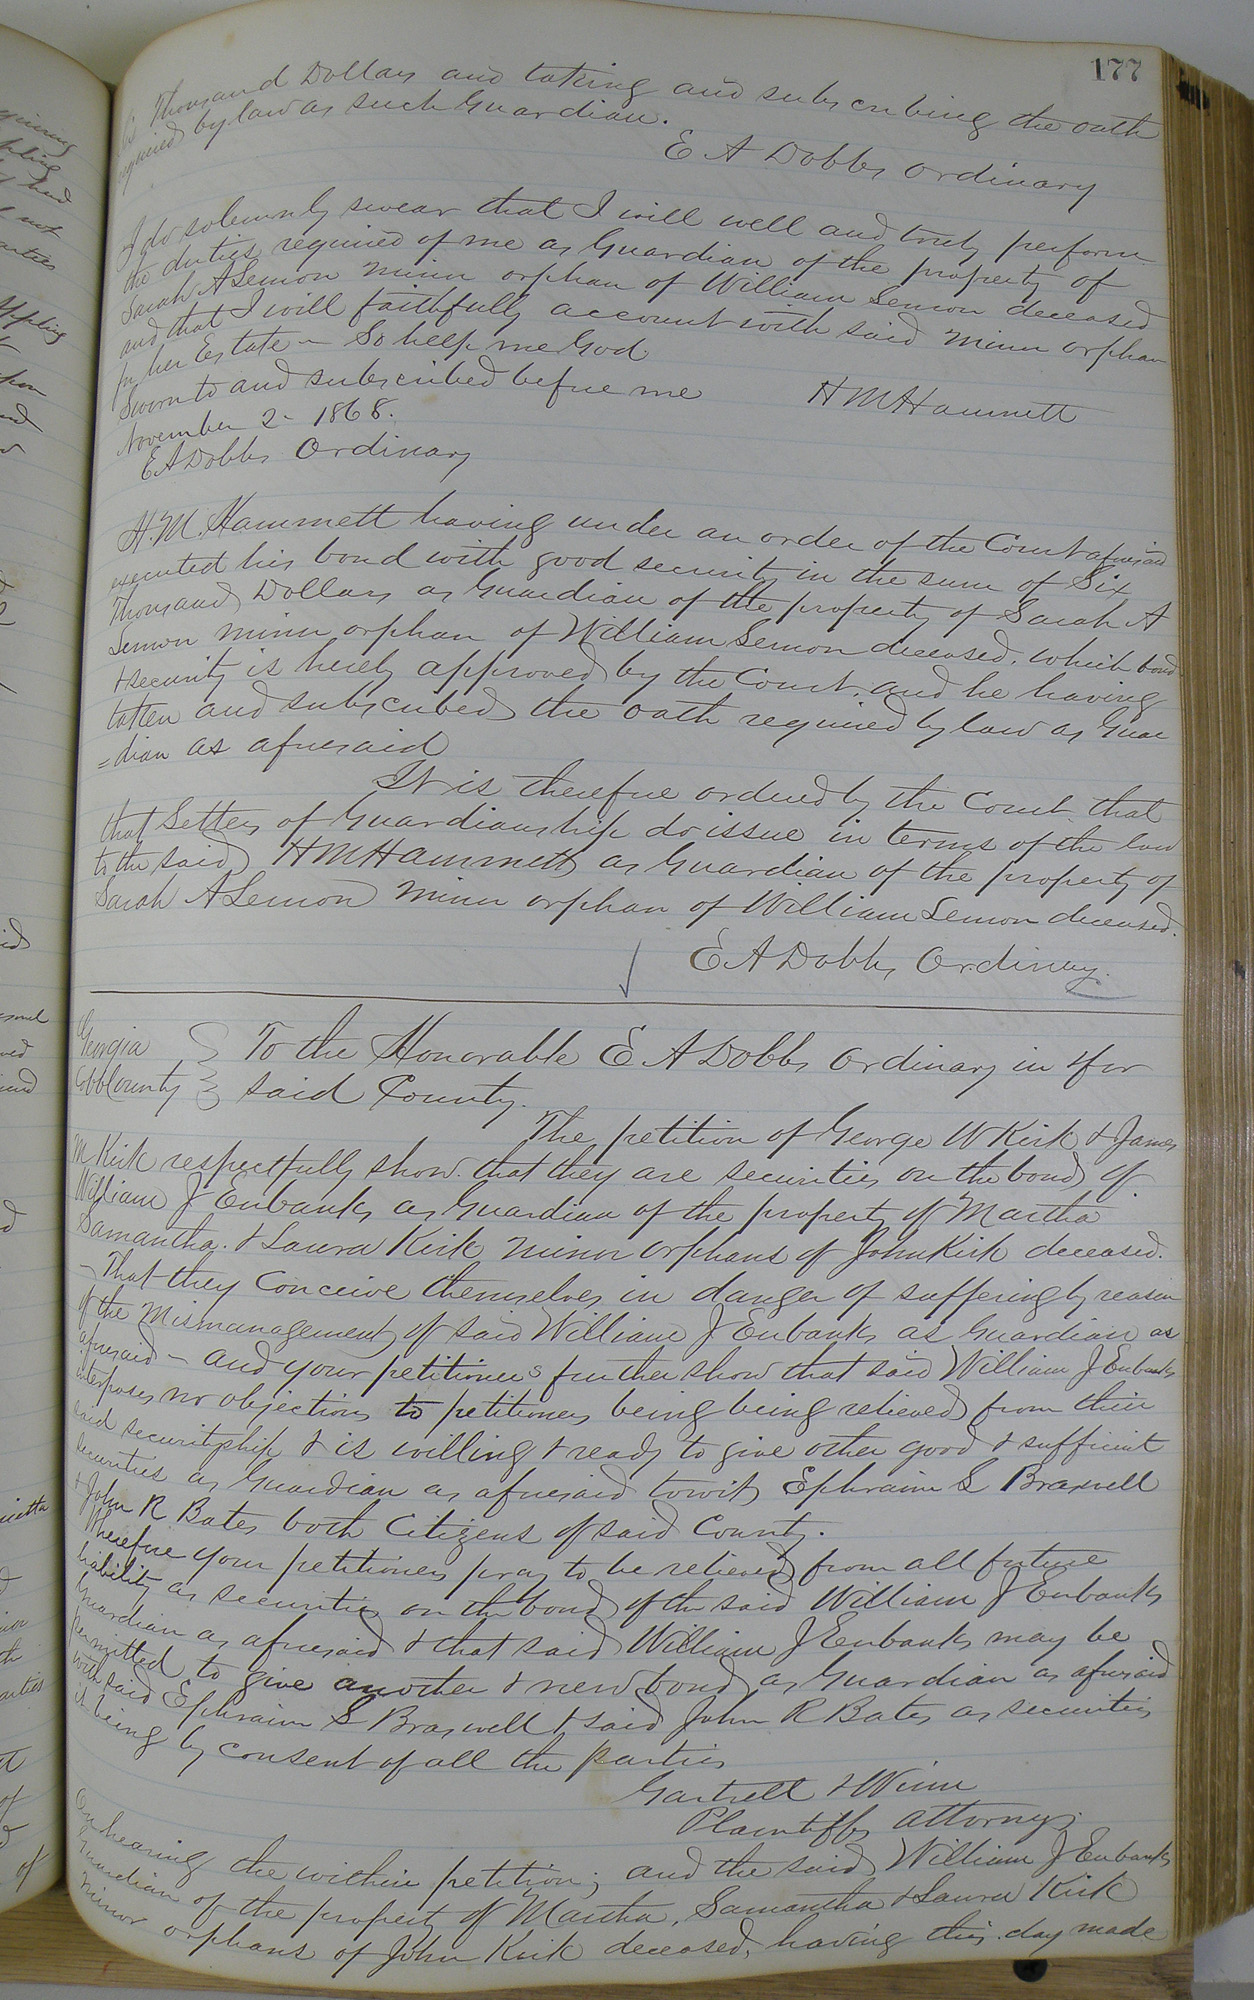 177
Six Thousand Dollars and taking and subscribing the oath
required by law as such Guardian.
E A Dobbs Ordinary
I do solemnly swear that I will well and truly perform
the duties required of me as Guardian of the property of
Sarah A Lemon minor orphan of William Lemon deceased
and that I will faithfully account with said minor orphan
for her Estate - So help me God
Sworn to and subscribed before me H M Hammett
November 2 - 1868.
E A Dobbs Ordinary
H. M. Hammett having under an order of the Court aforesaid
executed his bond with good security in the sum of Six
Thousand Dollars as Guardian of the property of Sarah A
Lemon minor orphan of William Lemon deceased, which bond
& security is hereby approved by the Court, and he having
taken and subscribed the oath required by law as Guar
=dian as aforesaid
It is therefore ordered by the Court that
that Letters of Guardianship do issue in terms of the law
to the said H M Hammett as Guardian of the property of
Sarah A Lemon minor orphan of William Lemon deceased.
E A Dobbs Ordinary.
Georgia
Cobb County
To the Honorable E A Dobbs Ordinary in & for
said County.
The petition of George W Kirk & James
M Kirk respectfully show that they are securities on the bond of
William J Eubanks as Guardian of the property of Martha
Samantha. & Laura Kirk minor orphans of John Kirk deceased.
- That they Conceive themselves in danger of suffering by reason
of the Mismanagement of said William J Eubanks as Guardian as
aforesaid - and your petitioners further show that said William J Eubanks
interposes no objections to petitioners being being relieved from their
said securityship & is willing & ready to give other good & sufficient
securities as Guardian as aforesaid towit, Ephraim S Braswell
& John R Bates both Citizens of said County.
Therefore your petitioners pray to be relieved from all future
liability as securities on the bond of the said William J Eubanks
Guardian as aforesaid & that said William J Eubanks may be
permitted to give another & new bond as Guardian as aforesaid
with said Ephraim S Braswell & said John R Bates as securities
it being by consent of all the parties
Gartrell & Winn
Plaintiffs attorneys.
On hearing the within petition; and the said William J Eubanks
Guardian of the property of Martha, Samantha & Laura Kirk
minor orphans of John Kirk deceased, having this day made